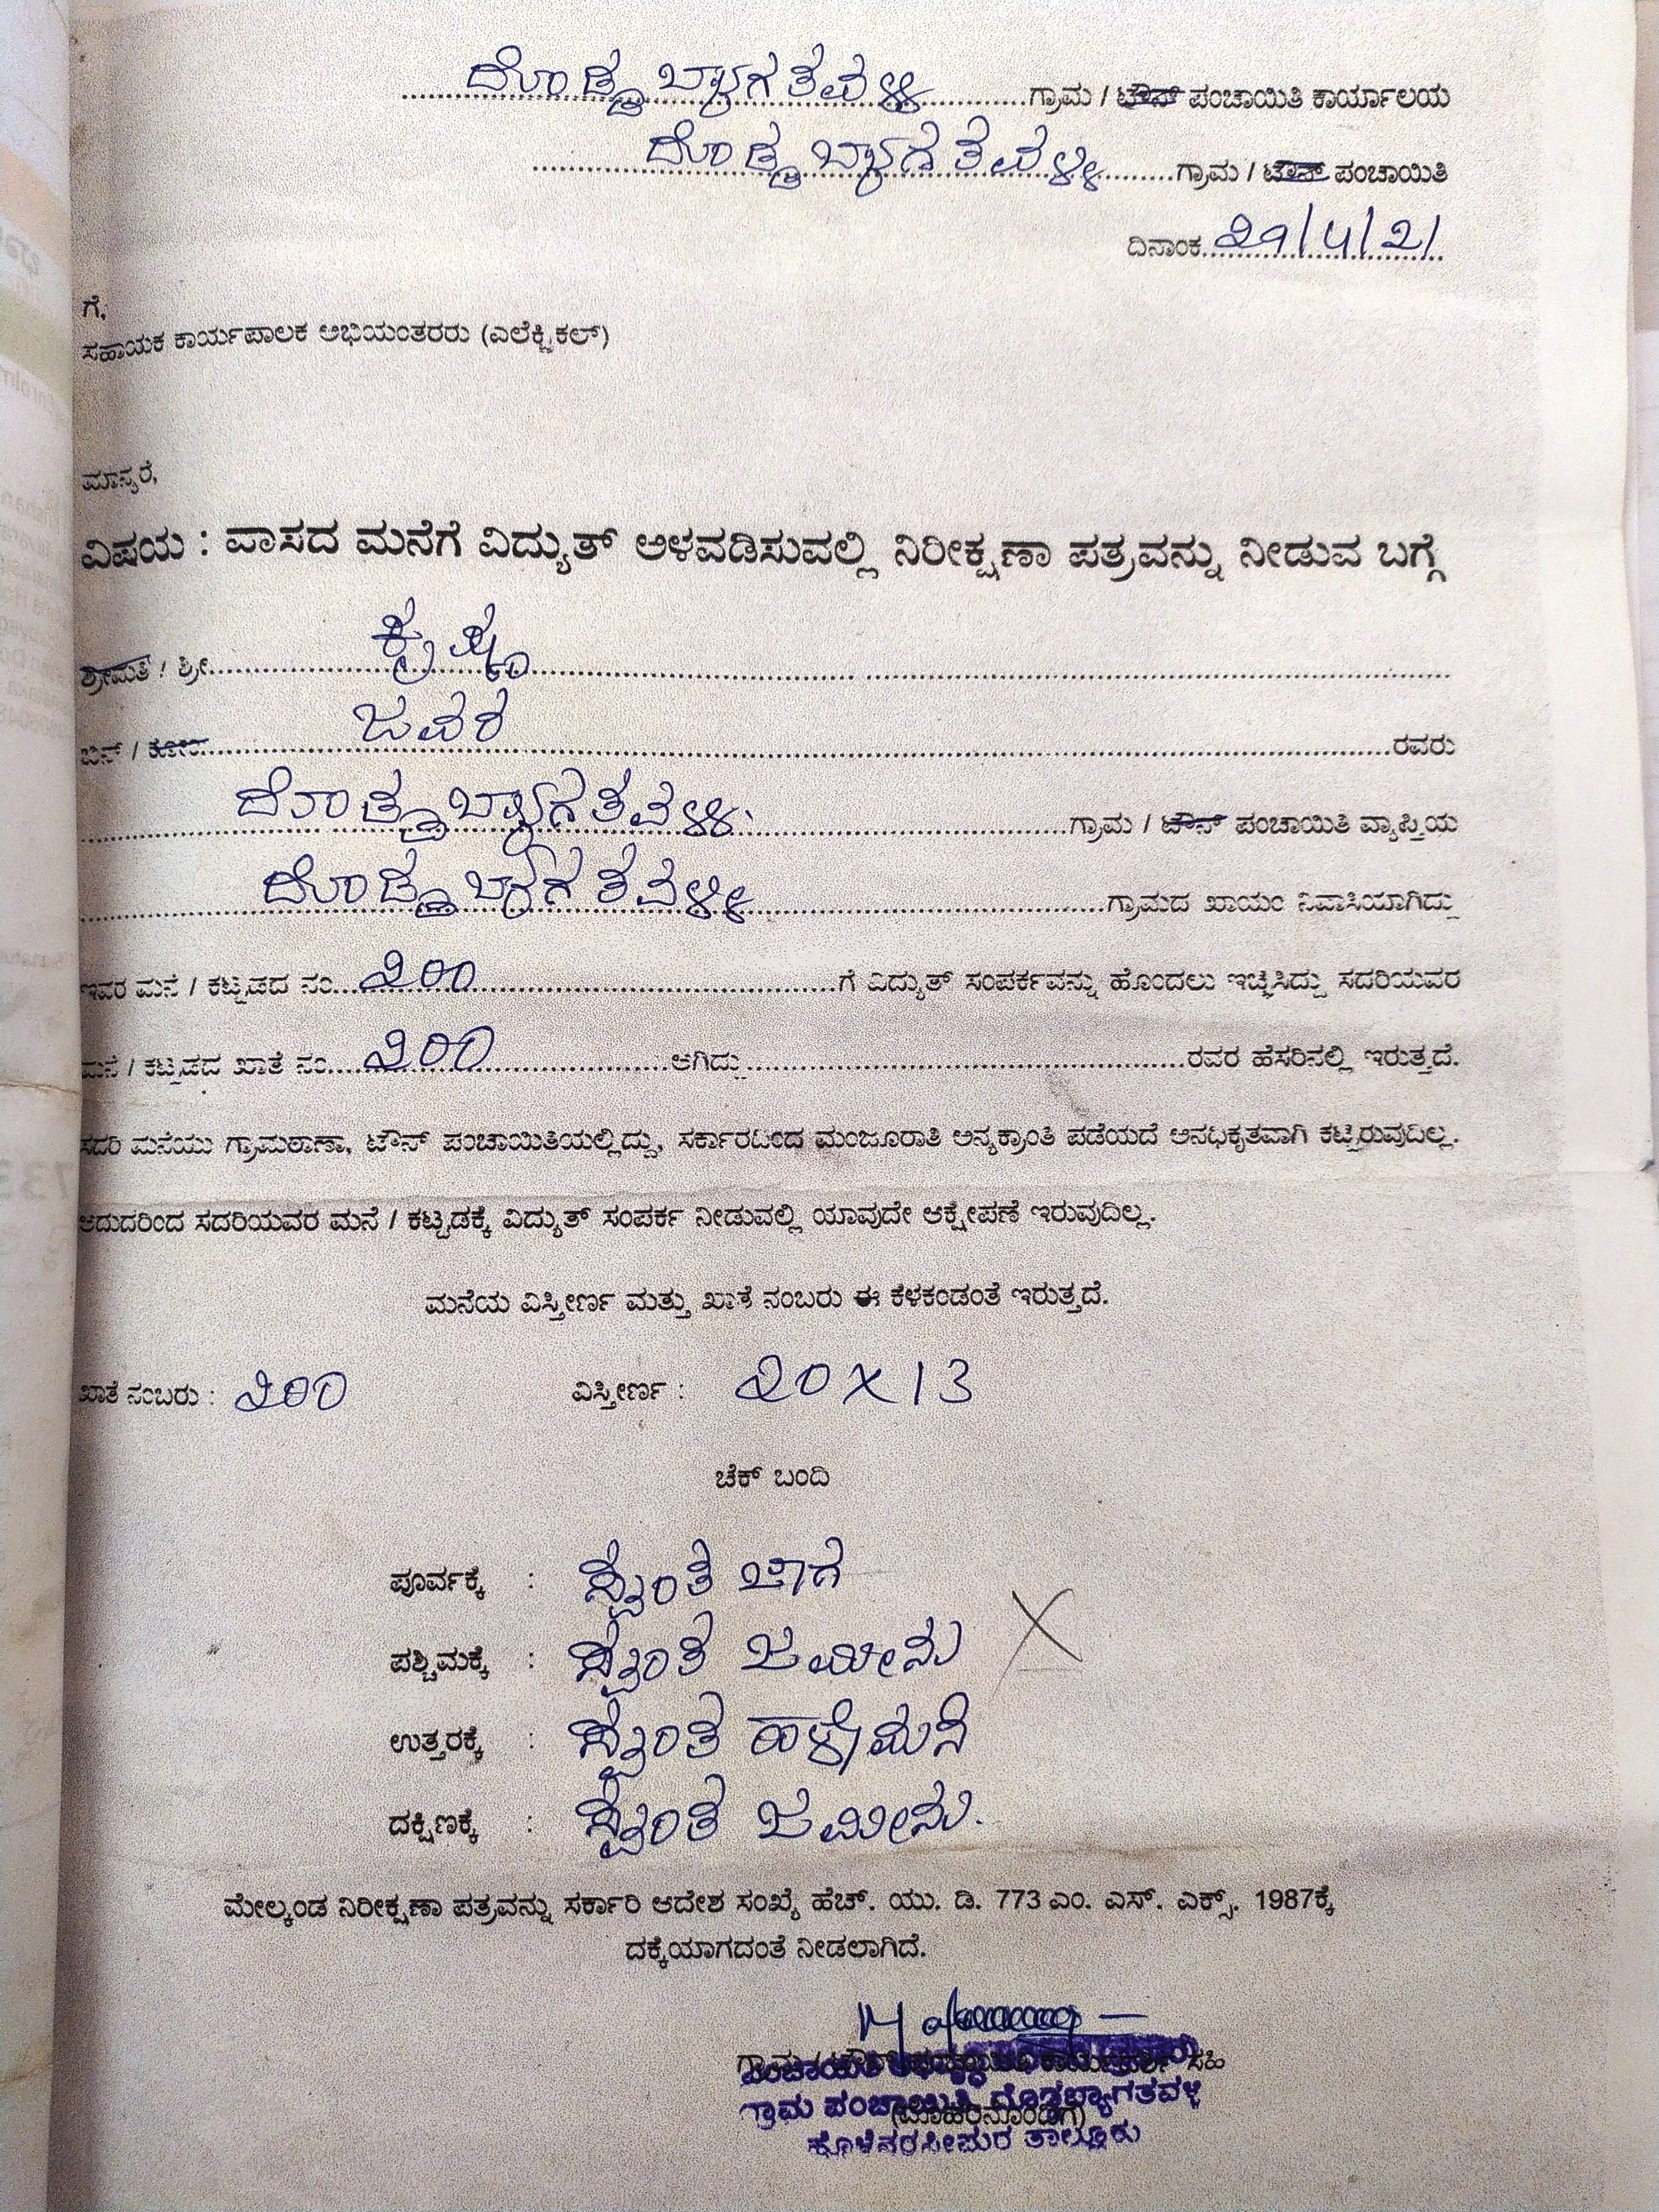 ದೊಡ್ಡಬ್ಯಾಗತವಳ್ಳಿ ಗ್ರಾಮ / ಟೌನ್ ಪಂಚಾಯಿತಿ ಕಾರ್ಯಾಲಯ
ದೊಡ್ಡಬ್ಯಾಗತವಳ್ಳಿ ಗ್ರಾಮ / ಟೌನ್ ಪಂಚಾಯಿತಿ
ದಿನಾಂಕ 29/4/21
ಗೆ,
ಸಹಾಯಕ ಕಾರ್ಯಪಾಲಕ ಅಭಿಯಂತರರು (ಎಲೆಕ್ಟ್ರಿಕಲ್)
ಮಾನ್ಯರೆ,
ವಿಷಯ : ವಾಸದ ಮನೆಗೆ ವಿದ್ಯುತ್ ಅಳವಡಿಸುವಲ್ಲಿ ನಿರೀಕ್ಷಣಾ ಪತ್ರವನ್ನು ನೀಡುವ ಬಗ್ಗೆ
ಶ್ರೀಮತಿ / ಶ್ರೀ ಕೃಷ್ಣ
ಬಿನ್ / ಕೋಂ ಜವರ ರವರು
ದೊಡ್ಡಬ್ಯಾಗತವಳ್ಳಿ ಗ್ರಾಮ / ಟೌನ್ ಪಂಚಾಯಿತಿ ವ್ಯಾಪ್ತಿಯ
ದೊಡ್ಡಬ್ಯಾಗತವಳ್ಳಿ ಗ್ರಾಮದ ಖಾಯಂ ನಿವಾಸಿಯಾಗಿದ್ದು
ಇವರ ಮನೆ / ಕಟ್ಟಡದ ನಂ 200 ಗೆ ವಿದ್ಯುತ್ ಸಂಪರ್ಕವನ್ನು ಹೊಂದಲು ಇಚ್ಛಿಸಿದ್ದು ಸದರಿಯವರ
ಮನೆ / ಕಟ್ಟಡದ ಖಾತೆ ನಂ 200 ಆಗಿದ್ದು ರವರ ಹೆಸರಿನಲ್ಲಿ ಇರುತ್ತದೆ.
ಸದರಿ ಮನೆಯು ಗ್ರಾಮಠಾಣಾ, ಟೌನ್ ಪಂಚಾಯಿತಿಯಲ್ಲಿದ್ದು, ಸರ್ಕಾರದಿಂದ ಮಂಜೂರಾತಿ ಅನ್ಯಕ್ರಾಂತಿ ಪಡೆಯದೆ ಅನಧಿಕೃತವಾಗಿ ಕಟ್ಟಿರುವುದಿಲ್ಲ.
ಆದುದರಿಂದ ಸದರಿಯವರ ಮನೆ / ಕಟ್ಟಡಕ್ಕೆ ವಿದ್ಯುತ್ ಸಂಪರ್ಕ ನೀಡುವಲ್ಲಿ ಯಾವುದೇ ಆಕ್ಷೇಪಣೆ ಇರುವುದಿಲ್ಲ.
ಮನೆಯ ವಿಸ್ತೀರ್ಣ ಮತ್ತು ಖಾತೆ ನಂಬರು ಈ ಕೆಳಕಂಡಂತೆ ಇರುತ್ತದೆ.
ಖಾತೆ ನಂಬರು : 200 ವಿಸ್ತೀರ್ಣ : 20 X 13
ಚೆಕ್ ಬಂದಿ
ಪೂರ್ವಕ್ಕೆ : ಸ್ವಂತ ಜಾಗ
ಪಶ್ಚಿಮಕ್ಕೆ : ಸ್ವಂತ ಜಮೀನು X
ಉತ್ತರಕ್ಕೆ : ಸ್ವಂತ ಹಳೇ ಮನೆ
ದಕ್ಷಿಣಕ್ಕೆ : ಸ್ವಂತ ಜಮೀನು.
ಮೇಲ್ಕಂಡ ನಿರೀಕ್ಷಣಾ ಪತ್ರವನ್ನು ಸರ್ಕಾರಿ ಆದೇಶ ಸಂಖ್ಯೆ ಹೆಚ್. ಯು. ಡಿ. 773 ಎಂ. ಎಸ್. ಎಕ್ಸ್. 1987ಕ್ಕೆ
ದಕ್ಕೆಯಾಗದಂತೆ ನೀಡಲಾಗಿದೆ.
ಗ್ರಾಮ / ಟೌನ್ ಸಹಿ
ಗ್ರಾಮ ಪಂಚಾಯಿತಿ, ದೊಡ್ಡಬ್ಯಾಗತವಳ್ಳಿ
(ಮೊಹರಿನೊಂದಿಗೆ)
ಹೊಳೆನರಸೀಪುರ ತಾಲ್ಲೂಕು